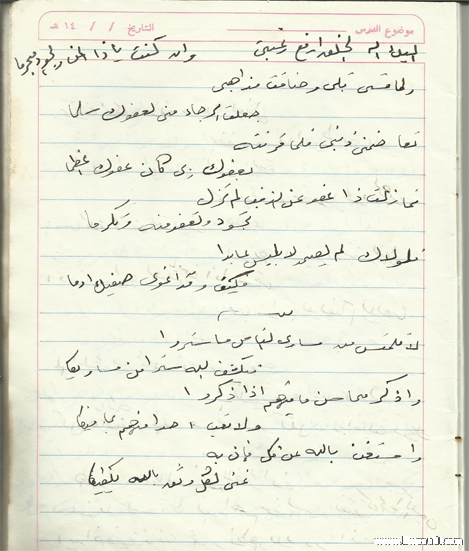 موضوع الدرس التاريخ / / ١٤ هـ
اليك اله الخلق ارفع رغبتي وان كنت يا ذا المن والجود مجرما
ولما قسى قلبي وضاقت مذاهبي
جعلت الرجاء مني لعفوك سلما
تعاضمني ذنبي فلما قرنته
بعفوك ربي كان عفوك اعظما
فما زلت ذا عفو عن الذنب لم تزل
تجود وتعفو منة وتكرما
فلولاك لم يصمد لابليس عابدا
فكيف وقد اغوى صفيك ادما
لا تلتمس من مساوئ الناس ما ستروا
فيكشف الله سترا من مساويكا
واذكر محاسن ما فيهم اذا ذكروا
ولا تعب احدا منهم بما فيكا
واستغن بالله عن كل فإن به
غنى لكل وثق بالله يكفيكا